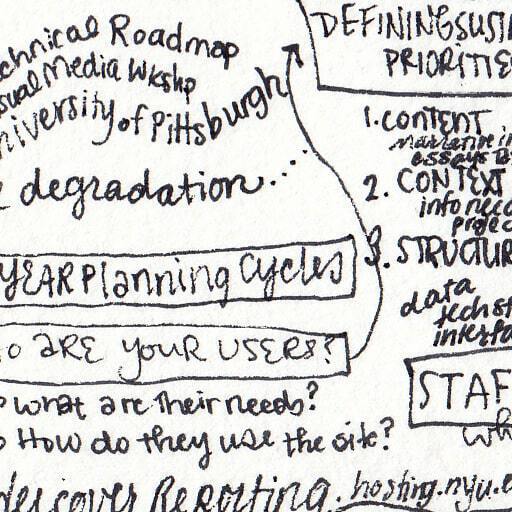 chnical Roadmap
sual Media Wkshp
niversity of Pittsburgh
degradation...
YEAR Planning Cycles
o ARE YOUR USERS?
what are their needs?
How do they use the site?
Reporting. hosting.nyu.e
DEFINING SUSTA
PRIORITIE
1. CONTENT
essays
2. CONTEXT
info need
projec
3. STRUCTUR
data
tech st
interfa
STAF
wh